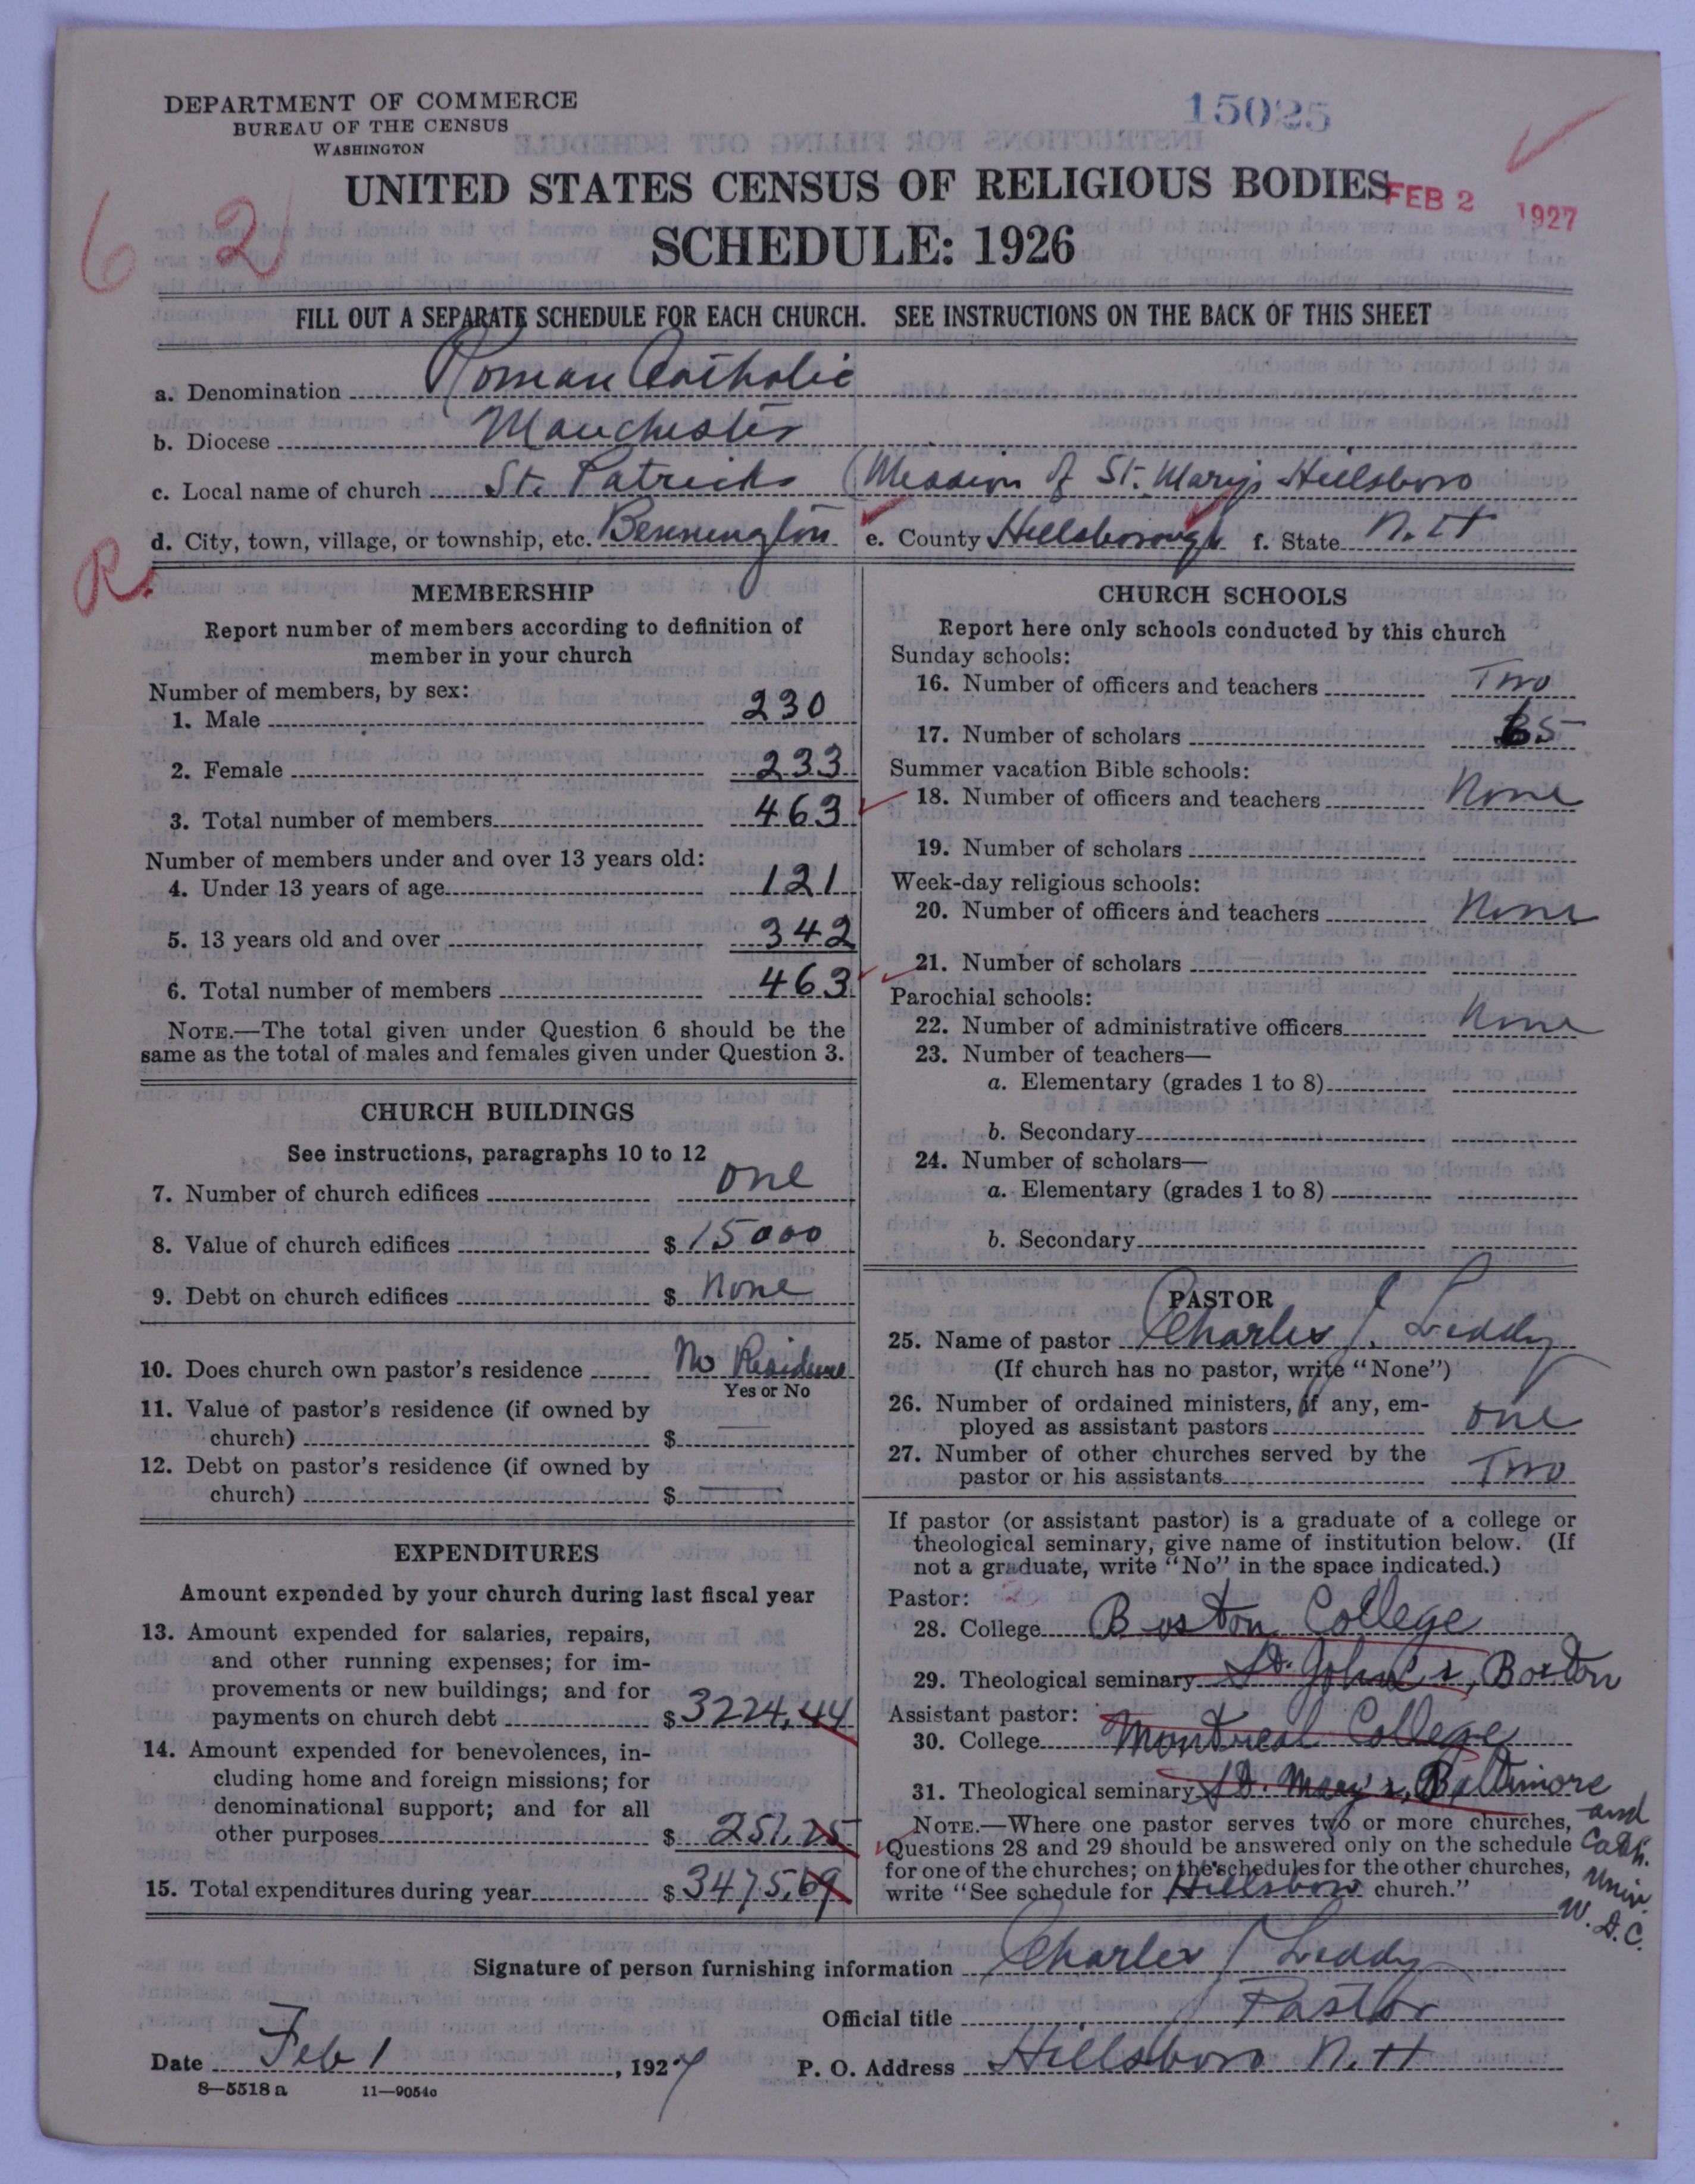 DEPARTMENT OF COMMERCE
BUREAU OF THE CENSUS
WASHINGTON
15025
UNITED STATES CENSUS OF RELIGIOUS BODIES
FEB 2 1927
6 2
SCHEDULE: 1926
FILL OUT A SEPARATE SCHEDULE FOR EACH CHURCH. SEE INSTRUCTIONS ON THE BACK OF THIS SHEET
a. Denomination Roman Catholic
b. Diocese Manchester
c. Local name of church St. Patricks (Mission of St. Mary's Hillsboro
d. City, town, village, or township, etc. Bennington e. County Hillsborough f. State N. H
R.
MEMBERSHIP
Report number of members according to definition of
member in your church
Number of members, by sex:
1. Male 230
2. Female 233
3. Total number of members 463
Number of members under and over 13 years old:
4. Under 13 years of age 121
5. 13 years old and over 342
6. Total number of members 463
NOTE.—The total given under Question 6 should be the
same as the total of males and females given under Question 3.
CHURCH BUILDINGS
See instructions, paragraphs 10 to 12
7. Number of church edifices one
8. Value of church edifices $ 15000
9. Debt on church edifices $ None
10. Does church own pastor's residence No Residence
Yes or No
11. Value of pastor's residence (if owned by
church) $
12. Debt on pastor's residence (if owned by
church) $
EXPENDITURES
Amount expended by your church during last fiscal year
13. Amount expended for salaries, repairs,
and other running expenses; for im-
provements or new buildings; and for
payments on church debt $ 3224.44
14. Amount expended for benevolences, in-
cluding home and foreign missions; for
denominational support; and for all
other purposes $ 251.25
15. Total expenditures during year $ 3475.69
CHURCH SCHOOLS
Report here only schools conducted by this church
Sunday schools:
16. Number of officers and teachers Two
17. Number of scholars 65
Summer vacation Bible schools:
18. Number of officers and teachers None
19. Number of scholars
Week-day religious schools:
20. Number of officers and teachers None
21. Number of scholars
Parochial schools:
22. Number of administrative officers None
23. Number of teachers—
a. Elementary (grades 1 to 8)
b. Secondary
24. Number of scholars—
a. Elementary (grades 1 to 8)
b. Secondary
PASTOR
25. Name of pastor Charles J. Leddy
(If church has no pastor, write "None")
26. Number of ordained ministers, if any, em-
ployed as assistant pastors one
27. Number of other churches served by the
pastor or his assistants Two
If pastor (or assistant pastor) is a graduate of a college or
theological seminary, give name of institution below. (If
not a graduate, write "No" in the space indicated.)
Pastor:
28. College Boston College
29. Theological seminary St. John's, Boston
Assistant pastor:
30. College Montreal College
31. Theological seminary St. Mary's, Baltimore
and Cath. Univ. W. D.C.
NOTE.—Where one pastor serves two or more churches,
Questions 28 and 29 should be answered only on the schedule
for one of the churches; on the schedules for the other churches,
write "See schedule for Hillsboro church."
Signature of person furnishing information Charles J Leddy
Official title Pastor
Date Feb 1, 1927 P. O. Address Hillsboro N. H
8—5518 a 11—9054c